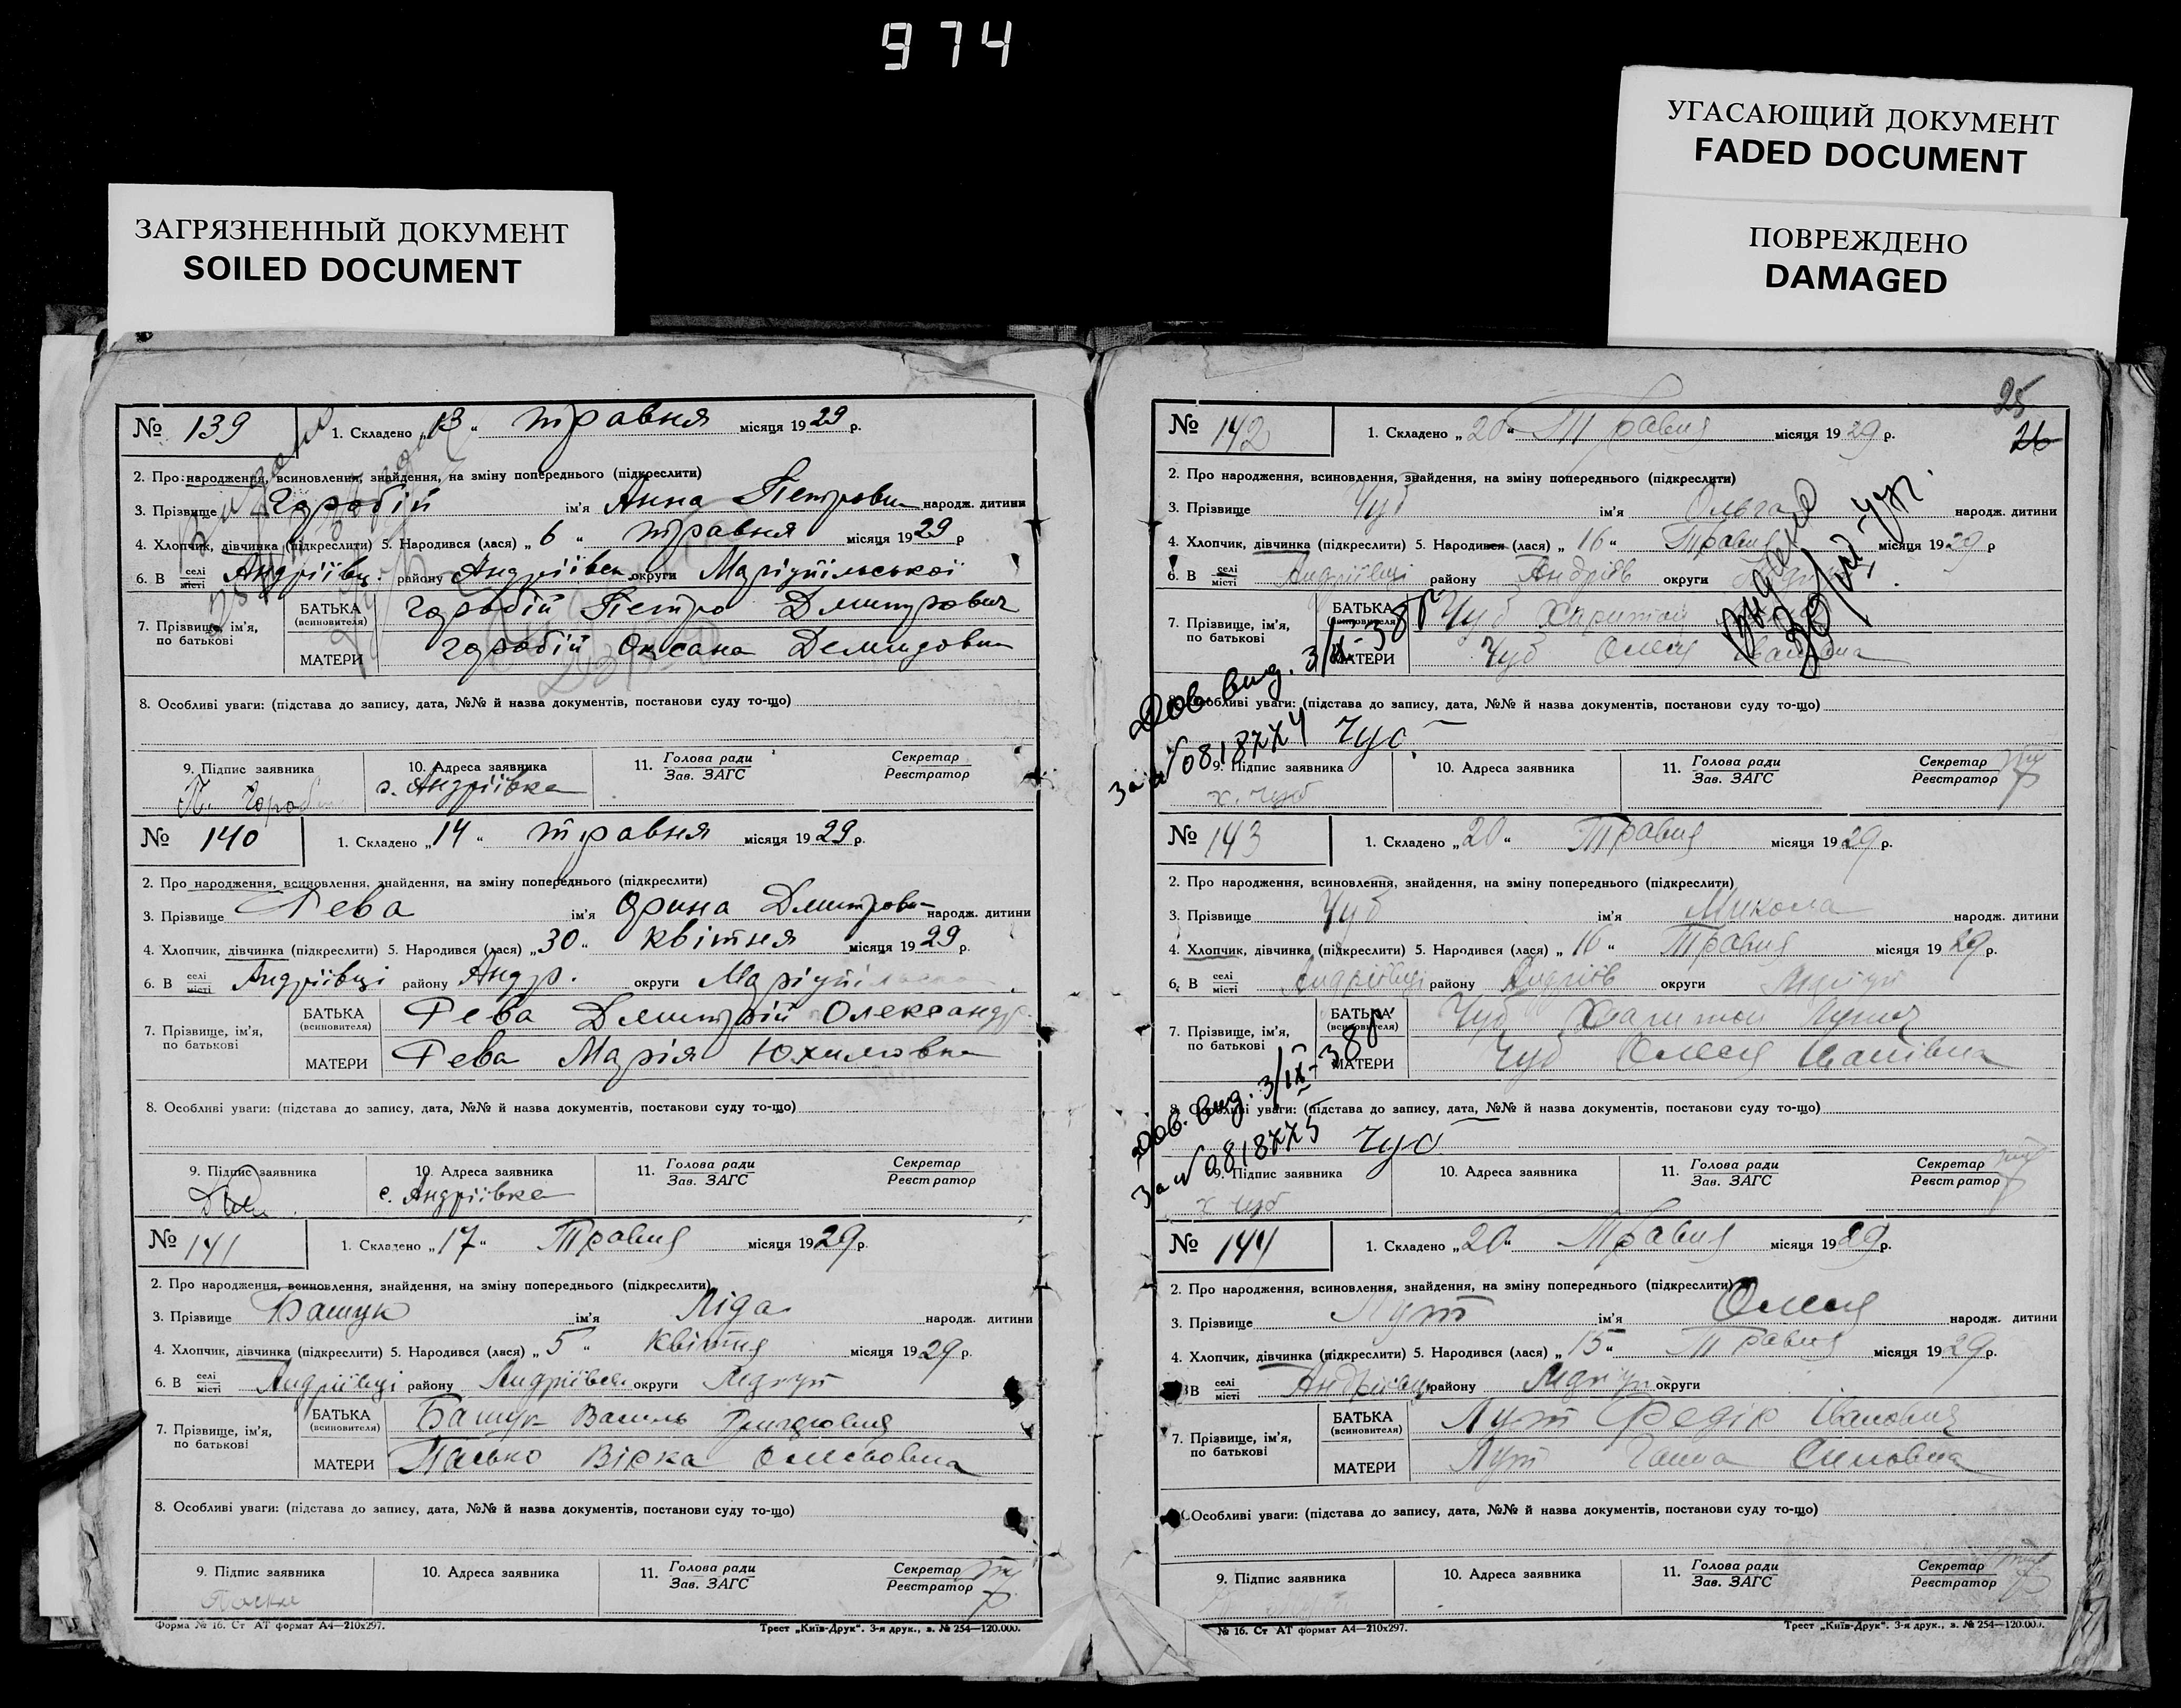 974
ЗАГРЯЗНЕННЫЙ ДОКУМЕНТ
SOILED DOCUMENT
УГАСАЮЩИЙ ДОКУМЕНТ
FADED DOCUMENT
ПОВРЕЖДЕНО
DAMAGED
№ 139 1. Складено „13“ травня місяця 1929 р.
2. Про: народження, всиновлення, знайдення, на зміну попереднього (підкреслити)
3. Прізвище Горобій ім'я Анна Петровн народж. дитини
4. Хлопчик, дівчинка (підкреслити) 5. Народився (лася) „6“ травня місяця 1929 р
6. В селі місті Андріївц. району Андріївськ округи Маріупільської
7. Прізвище, ім'я, по батькові
БАТЬКА (всиновителя) Горобій Петро Дмитрович
МАТЕРИ Горобій Оксана Демидовн
8. Особливі уваги: (підстава до запису, дата, №№ й назва документів, постанови суду то-що)
9. Підпис заявника 10. Адреса заявника 11. Голова ради Зав. ЗАГС Секретар Реєстратор
П. Гороб с. Андріївка
№ 140 1. Складено „14“ травня місяця 1929 р.
2. Про народження, всиновлення, знайдення, на зміну попереднього (підкреслити)
3. Прізвище Рева ім'я Орина Дмитровн народж. дитини
4. Хлопчик, дівчинка (підкреслити) 5. Народився (лася) „30“ квітня місяця 1929 р.
6. В селі місті Андріївці району Андр. округи Маріупіль
7. Прізвище, ім'я, по батькові
БАТЬКА (всиновителя) Рева Дмитрій Олександр
МАТЕРИ Рева Марія Юхимовна
8. Особливі уваги: (підстава до запису, дата, №№ й назва документів, постакови суду то-що)
9. Підпис заявника 10. Адреса заявника 11. Голова ради Зав. ЗАГС Секретар Реєстратор
с. Андріївка
№ 141 1. Складено „17“ Травня місяця 1929 р.
2. Про народження, всиновлення, знайдення, на зміну попереднього (підкреслити)
3. Прізвище Башук ім'я Ліда народж. дитини
4. Хлопчик, дівчинка (підкреслити) 5. Народився (лася) „5“ Квітня місяця 1929 р.
6. В селі місті Андріївці району Андріївськ округи Марiуп
7. Прізвище, ім'я, по батькові
БАТЬКА (всиновителя) Башук Василь
МАТЕРИ Пасько Вірка
8. Особливі уваги: (підстава до запису, дата, №№ й назва документів, постанови суду то-що)
9. Підпис заявника 10. Адреса заявника 11. Голова ради Зав. ЗАГС Секретар Реєстратор
Форма № 16. Ст АТ формат А4—210x297. Трест „Київ-Друк“. 3-я друк., з. № 254—120.000.
25
26
№ 142 1. Складено „20“ Травня місяця 1929 р.
2. Про народження, всиновлення, знайдення, на зміну попереднього (підкреслити)
3. Прізвище Чуб ім'я Ольга народж. дитини
4. Хлопчик, дівчинка (підкреслити) 5. Народився (лася) „16“ Травня місяця 1929 р
6. В селі місті Андріївці району Андріїв округи
7. Прізвище, ім'я, по батькові
БАТЬКА (всиновителя) Чуб Харитон
МАТЕРИ Чуб Олена Іванівна
8. Особливі уваги: (підстава до запису, дата, №№ й назва документів, постанови суду то-що)
Дов. вид. 3/IX-38 р
за № 0818774 Чуб
9. Підпис заявника 10. Адреса заявника 11. Голова ради Зав. ЗАГС Секретар Реєстратор
Х. Чуб
№ 143 1. Складено „20“ Травня місяця 1929 р.
2. Про народження, всиновлення, знайдення, на зміну попереднього (підкреслити)
3. Прізвище Чуб ім'я Микола народж. дитини
4. Хлопчик, дівчинка (підкреслити) 5. Народився (лася) „16“ Травня місяця 1929 р.
6. В селі місті Андріївці району Андріїв округи Маріуп
7. Прізвище, ім'я, по батькові
БАТЬКА (всиновителя) Чуб Харитон
МАТЕРИ Чуб Олена Іванівна
8. Особливі уваги: (підстава до запису, дата, №№ й назва документів, постакови суду то-що)
Дов. вид. 3/IX-38 р
За № 0818775 Чуб
9. Підпис заявника 10. Адреса заявника 11. Голова ради Зав. ЗАГС Секретар Реєстратор
Х Чуб
№ 144 1. Складено „20“ Травня місяця 1929 р.
2. Про народження, всиновлення, знайдення, на зміну попереднього (підкреслити)
3. Прізвище Лут ім'я Олена народж. дитини
4. Хлопчик, дівчинка (підкреслити) 5. Народився (лася) „15“ Травня місяця 1929 р.
В селі місті Андріївці району Маріуп округи
7. Прізвище, ім'я, по батькові
БАТЬКА (всиновителя) Лут Федір Іванович
МАТЕРИ Лут Ганна
Особливі уваги: (підстава до запису, дата, №№ й назва документів, постанови суду то-що)
9. Підпис заявника 10. Адреса заявника 11. Голова ради Зав. ЗАГС Секретар Реєстратор
№ 16. Ст АТ формат А4—210x297. Трест „Київ-Друк“. 3-я друк., з. № 254—120.000.